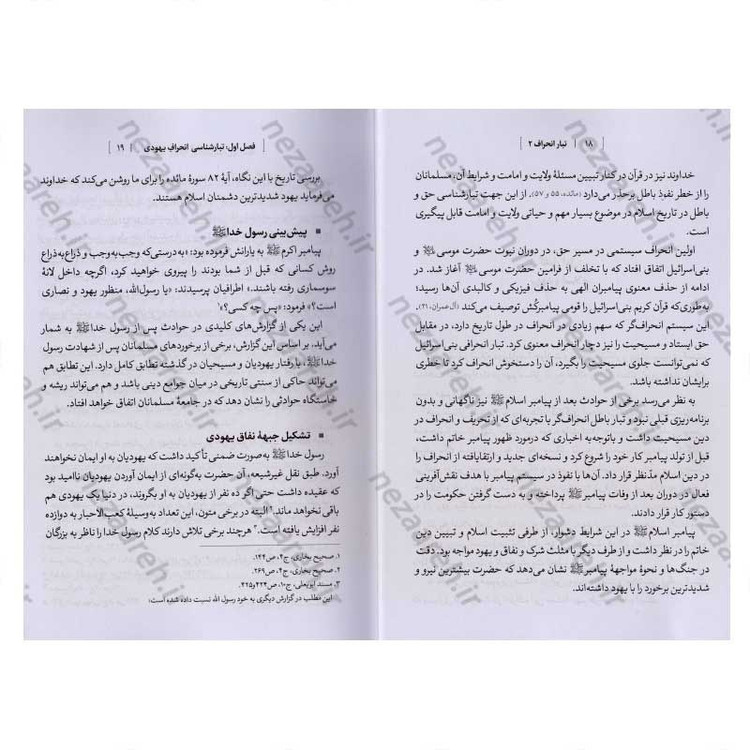 ۱۸ | تبار انحراف ۲
خداوند نیز در قرآن در کنار تبیین مسئلۀ ولایت و امامت و شرایط آن، مسلمانان
را از خطر نفوذ باطل برحذر می‌دارد (مائده، ۵۵ و ۵۷). از این جهت تبارشناسی حق و
باطل در تاریخ اسلام در موضوع بسیار مهم و حیاتی ولایت و امامت قابل پیگیری
است.
اولین انحراف سیستمی در مسیر حق، در دوران نبوت حضرت موسی ﷺ و
بنی‌اسرائیل اتفاق افتاد که با تخلف از فرامین حضرت موسی ﷺ آغاز شد. در
ادامه از حذف معنوی پیامبران الهی به حذف فیزیکی و کالبدی آن‌ها رسید؛
به‌طوری‌که قرآن کریم بنی‌اسرائیل را قومی پیامبرکُش توصیف می‌کند (آل‌عمران، ۲۱).
این سیستم انحراف‌گر که سهم زیادی در انحراف در طول تاریخ دارد، در مقابل
حق ایستاد و مسیحیت را نیز دچار انحراف معنوی کرد. تبار انحرافی بنی‌اسرائیل
که نمی‌توانست جلوی مسیحیت را بگیرد، آن را دستخوش انحراف کرد تا خطری
برایشان نداشته باشد.
به نظر می‌رسد برخی از حوادث بعد از پیامبر اسلام ﷺ نیز ناگهانی و بدون
برنامه‌ریزی قبلی نبود و تبار باطل انحراف‌گر با تجربه‌ای که از تحریف و انحراف در
دین مسیحیت داشت و باتوجه‌به اخباری که درمورد ظهور پیامبر خاتم داشت،
قبل از تولد پیامبر کار خود را شروع کرد و نسخه‌ای جدید و ارتقایافته از انحراف را
در دین اسلام مدّنظر قرار داد. آن‌ها با نفوذ در سیستم پیامبر با هدف نقش‌آفرینی
فعال در دوران بعد از وفات پیامبر ﷺ پرداخته و به دست گرفتن حکومت را در
دستور کار قرار دادند.
پیامبر اسلام ﷺ در این شرایط دشوار، از طرفی تثبیت اسلام و تبیین دین
خاتم را در نظر داشت و از طرف دیگر با مثلث شرک و نفاق و یهود مواجه بود. دقت
در جنگ‌ها و نحوۀ مواجهۀ پیامبر ﷺ نشان می‌دهد که حضرت بیشترین نیرو و
شدیدترین برخورد را با یهود داشته‌اند.
فصل اول: تبارشناسی انحراف یهودی | ۱۹
بررسی تاریخ با این نگاه، آیۀ ۸۲ سورۀ مائده را برای ما روشن می‌کند که خداوند
می‌فرماید یهود شدیدترین دشمنان اسلام هستند.
▪ پیش‌بینی رسول خدا ﷺ
پیامبر اکرم ﷺ به یارانش فرموده بود: «به‌درستی‌که وجب‌به‌وجب و ذراع‌به‌ذراع
روش کسانی که قبل از شما بودند را پیروی خواهید کرد، اگرچه داخل لانۀ
سوسماری رفته باشند.» اطرافیان پرسیدند: «یا رسول‌الله، منظور یهود و نصاری
است؟» فرمود: «پس چه کسی؟»۱
این یکی از گزارش‌های کلیدی در حوادث پس از رسول خدا ﷺ به شمار
می‌آید. بر اساس این گزارش، برخی از برخوردهای مسلمانان پس از شهادت رسول
خدا ﷺ، با رفتار یهودیان و مسیحیان در گذشته تطابق کامل دارد. این تطابق هم
می‌تواند حاکی از سنتی تاریخی در میان جوامع دینی باشد و هم می‌تواند ریشه و
خاستگاه حوادثی را نشان دهد که در جامعۀ مسلمانان اتفاق خواهد افتاد.
▪ تشکیل جبهۀ نفاق یهودی
رسول خدا ﷺ به‌صورت ضمنی تأکید داشت که یهودیان به او ایمان نخواهند
آورد. طبق نقل غیرشیعه، آن حضرت به‌گونه‌ای از ایمان آوردن یهودیان ناامید بود
که عقیده داشت حتی اگر ده نفر از یهودیان به او بگروند، در دنیا یک یهودی هم
باقی نخواهد ماند.۲ البته در برخی متون، این تعداد به‌وسیلۀ کعب‌الاحبار به دوازده
نفر افزایش یافته است.۳ هرچند برخی تلاش دارند کلام رسول خدا را ناظر به بزرگان
۱. صحیح بخاری، ج۴، ص۱۴۴.
۲. صحیح بخاری، ج۴، ص۲۶۹.
۳. مسند ابویعلی، ج۱۰، ص۴۲۴و۴۲۵.
این مطلب در گزارش دیگری به خود رسول الله نسبت داده شده است:
nezaareh.ir